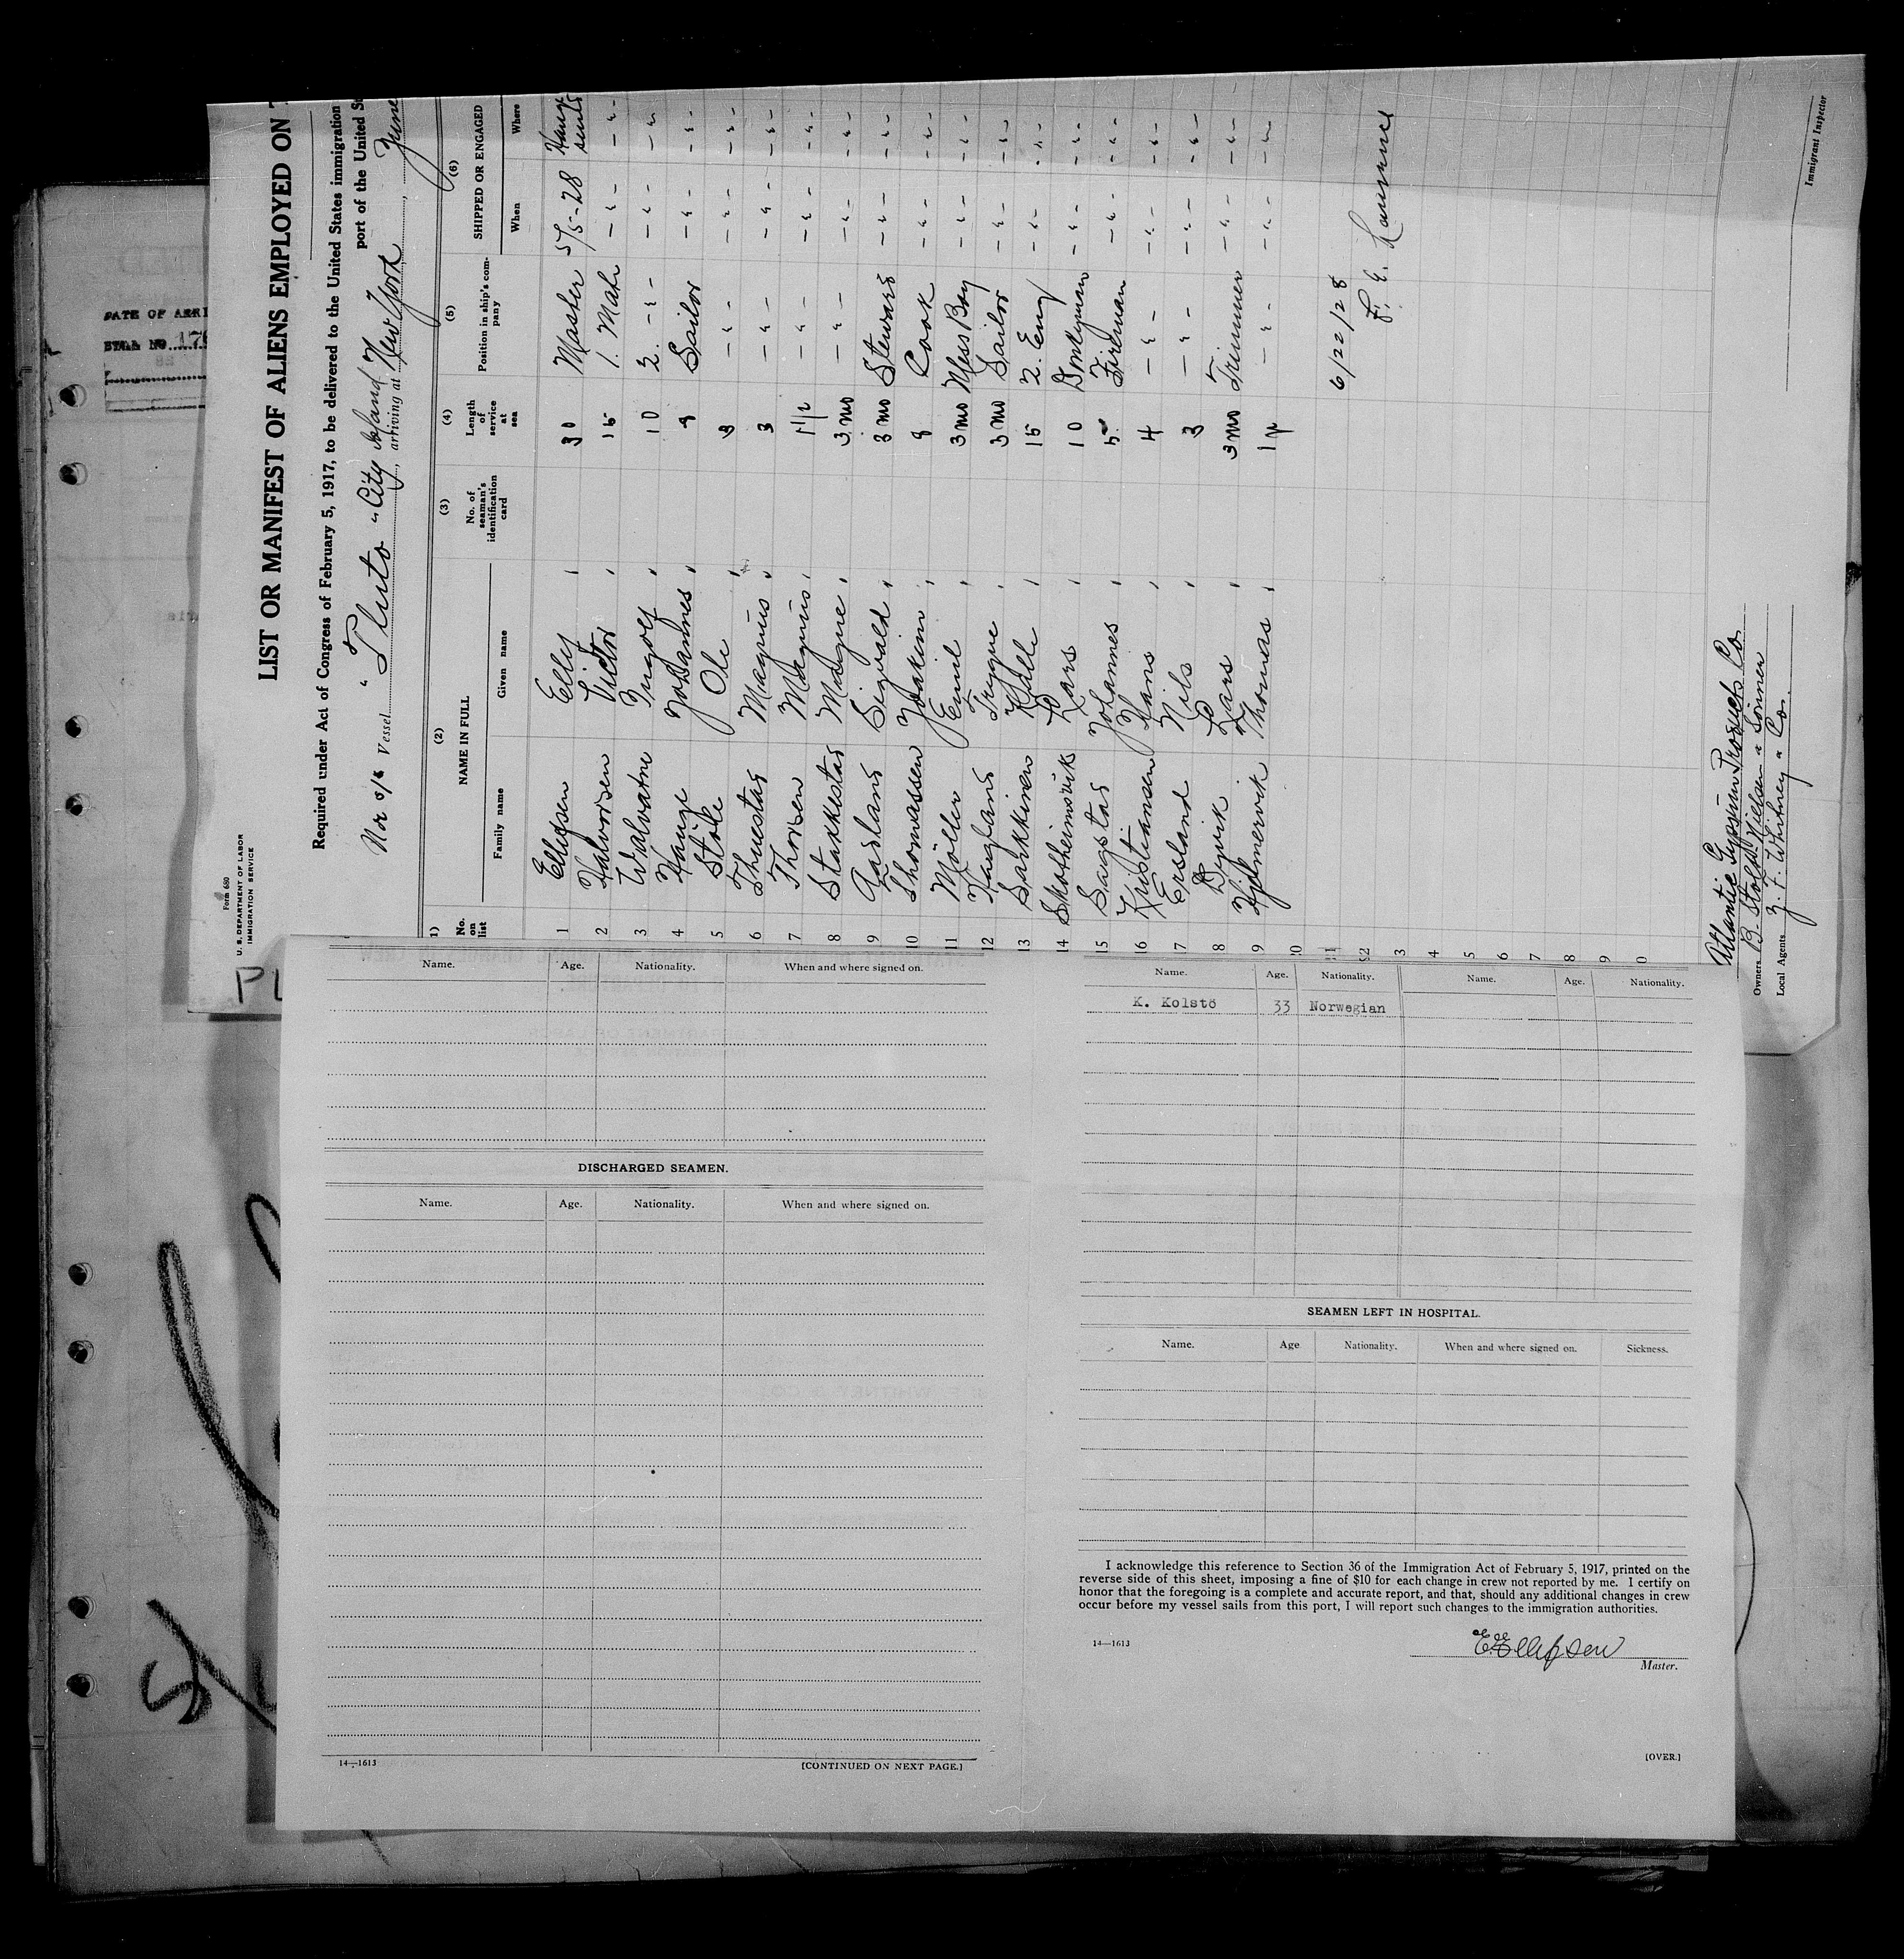 DATE OF ARRI
Form 680
U. S. DEPARTMENT OF LABOR
IMMIGRATION SERVICE
LIST OR MANIFEST OF ALIENS EMPLOYED ON
Required under Act of Congress of February 5, 1917, to be delivered to the United States immigration
port of the United St
Nor s/s Vessel "Pluto" City Island, arriving at New York, June
(1) (2) (3) (4) (5) (6)
No. on list
NAME IN FULL
Family name Given name
No. of seaman's identification card
Length of service at sea
Position in ship's company
SHIPPED OR ENGAGED
When Where
1 Ellefsen Elley 30 Master 5/5-28
2 Halvorsen Victor 15 1. Mate - " - - " -
3 Walvatne Ingolf 10 2. - " - - " - - " -
4 Hauge Johannes 9 Sailor - " - - " -
5 Støle Ole 3 - " - - " - - " -
6 Thuestad Magnus 3 - " - - " - - " -
7 Thorsen Magnus 1 1/2 - " - - " - - " -
8 Stakkestad Magne 3 mo - " - - " - - " -
9 Aarland Sigvald 3 mo Steward - " - - " -
10 Thomassen Joakim 9 Cook - " - - " -
11 Möller Emil 3 mo Mess Boy - " - - " -
12 Haugland Trygve 3 mo Sailor - " - - " -
13 Sarkkinen Kalle 15 2. Eng - " - - " -
14 Skotheimsvik Lars 10 Donkyman - " - - " -
15 Saugstad Johannes 5 Fireman - " - - " -
16 Kristiansen Hans 4 - " - - " - - " -
17 Ersland Nils 3 - " - - " - - " -
8 Dyvik Lars 3 mo Trimmer - " - - " -
9 Hjelmervik Thomas 1 yr - " - - " - - " -
6/22/28
F. E. Lawrence
Atlantic Gypsum Products Co
Owners B. Stolt-Nielsen & Sönner
Local Agents J. F. Whitney & Co.
Immigrant Inspector
Name. Age. Nationality. When and where signed on.
DISCHARGED SEAMEN.
Name. Age. Nationality. When and where signed on.
14—1613 [CONTINUED ON NEXT PAGE.]
Name. Age. Nationality. Name. Age. Nationality.
K. Kolstö 33 Norwegian
SEAMEN LEFT IN HOSPITAL.
Name. Age Nationality. When and where signed on. Sickness.
I acknowledge this reference to Section 36 of the Immigration Act of February 5, 1917, printed on the
reverse side of this sheet, imposing a fine of $10 for each change in crew not reported by me. I certify on
honor that the foregoing is a complete and accurate report, and that, should any additional changes in crew
occur before my vessel sails from this port, I will report such changes to the immigration authorities.
14—1613
E. Ellefsen
Master.
[OVER.]